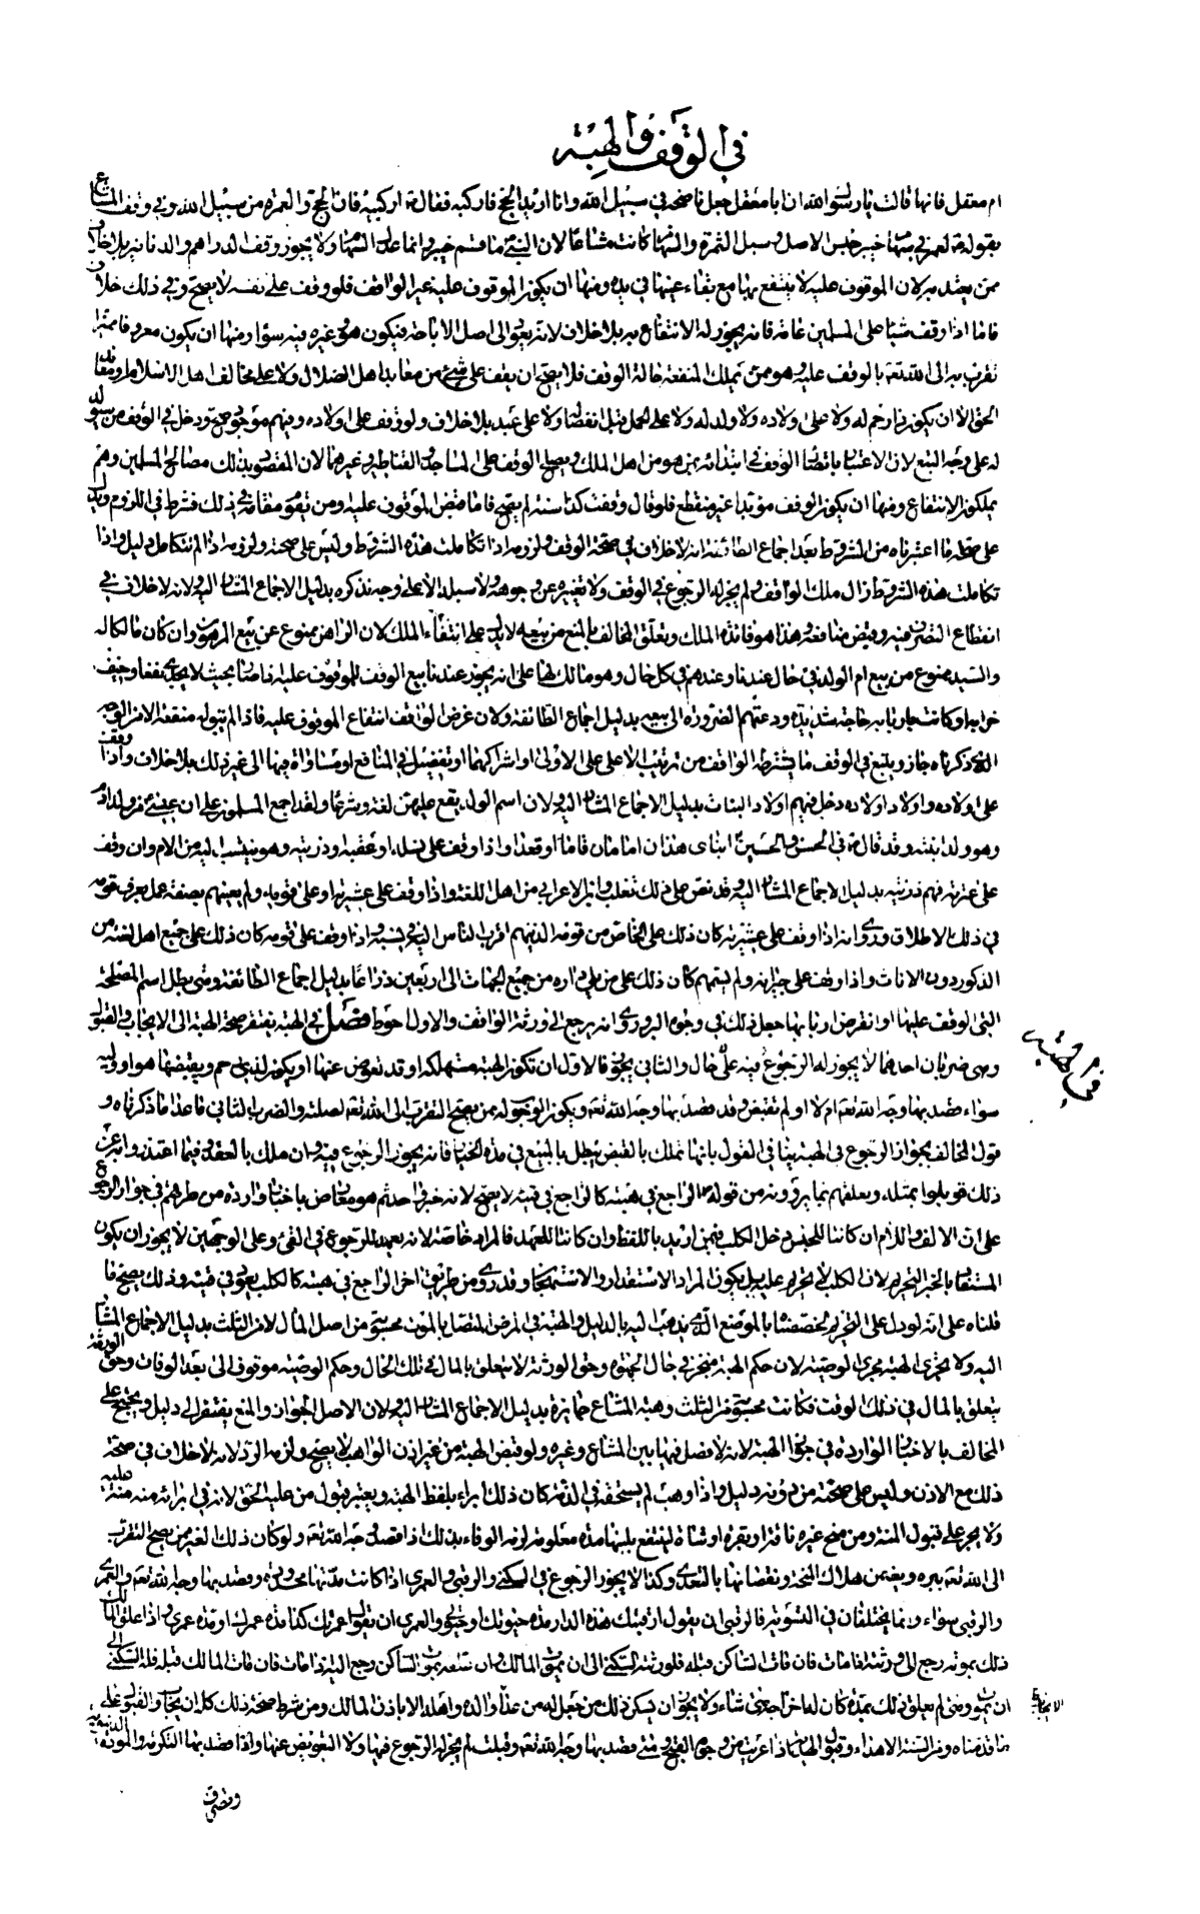 في الوقف والهبة
ام معقل فانها قالت يا رسول الله ان ابا معقل جعل ناضحه في سبيل الله وانا اريد الحج فاركبه فقال ع اركبيه فان الحج والعمرة من سبيل الله وفي وقف المشاع
بقوله ع لعمر في سهام خيبر حبس الاصل وسبل الثمرة والسهام كانت مشاعا لان النبي ص ما قسم خيبر وانما عدل السهام ولا يجوز وقف الدراهم والدنانير بلا خلاف
ممن يعتد به لان الموقوف عليه لا ينتفع بها مع بقاء عينها في يده ومنها ان يكون الموقوف عليه غير الواقف فلو وقف على نفسه لا يصح وفي ذلك خلاف
فاما اذا وقف شيئا على المسلمين عامة فانه يجوز له الانتفاع به بلا خلاف لانه يعود الى اصل الاباحة فيكون هو وغيره فيه سواء ومنها ان يكون معروفا متميزا
تقرب به الى الله تعه بالوقف عليه وهو ممن يملك المنفعة حالة الوقف فلا يصح ان يقف على شيء من معابد اهل الضلال ولا على مخالف اهل الاسلام او معاند
الحق الا ان يكون ذا رحم له ولا على اولاده ولا ولد له ولا على الحمل قبل انفصاله ولا على عبد بلا خلاف ولو وقف على اولاده وفيهم موجود صح ودخل في الوقف من سيولد
له على وجه التبع لان الاعتبار باتصال الوقف في ابتدائه بمن هو من اهل الملك ويصح الوقف على المساجد والقناطير وغيرهما لان المقصود بذلك مصالح المسلمين وهم
يملكون الانتفاع ومنها ان يكون الوقف مؤبدا غير منقطع فلو قال وقفت كذا سنة لم يصح فاما قبض الموقوف عليه ومن يقوم مقامه في ذلك فشرط في اللزوم ويدل
على صحة ما اعتبرناه من الشروط بعد اجماع الطائفة انه لا خلاف في صحة الوقف ولزومه اذا تكاملت هذه الشروط وليس على صحته ولزومه اذا لم تتكامل دليل واذا
تكاملت هذه الشروط زال ملك الواقف ولم يجز له الرجوع في الوقف ولا تغييره عن وجوهه ولا سبله الا على وجه نذكره بدليل الاجماع المشار اليه ولانه لا خلاف في
انقطاع التصرف فيه وقبض منافعه وهذا هو فائدة الملك وتعلق المخالف بالمنع من بيعه لا يدل على انتفاء الملك لان الراهن ممنوع عن بيع المرهون وان كان مالكا له
والسيد ممنوع من بيع ام الولد في حال عندنا وعندهم في كل حال وهو مالك لها على انه يجوز عندنا بيع الوقف للموقوف عليه اذا صار بحيث لا يجدي نفعا وخيف
خرابه او كانت باربابه حاجة شديدة ودعتهم الضرورة الى بيعه بدليل اجماع الطائفة ولان غرض الواقف انتفاع الموقوف عليه فاذا لم تبق له منفعة الا من الوجه
الذي ذكرناه جاز ويتبع في الوقف ما يشترطه الواقف من ترتيب الاعلى على الاولى او اشراكهما او تفضيل في المنافع او مساواة فيها الى غير ذلك بلا خلاف واذا وقف
على اولاده واولاد اولاده دخل فيهم اولاد البنات بدليل الاجماع المشار اليه ولان اسم الولد يقع عليهن لغة وشرعا ولقد اجمع المسلمون على ان عيسى ع من ولد ادم
وهو ولد ابنته وقد قال ع في الحسن والحسين ابناى هذان امامان قاما او قعدا واذا وقف على نسله او عقبه او ذريته وهو ينتسب اليه من الام وان وقف
على عترته فهم ذريته بدليل الاجماع المشار اليه وقد نص على ذلك ثعلب وابن الاعرابي من اهل اللغة واذا وقف على عشيرته او على قومه ولم يعينهم بصفة عمل بعرف قومه
في ذلك الاطلاق وروى انه اذا وقف على عشيرته كان ذلك على الخاص من قومه الذين هم اقرب الناس اليه في نسبه واذا وقف على قومه كان ذلك على جميع اهل لغته من
الذكور دون الاناث واذا وقف على جيرانه ولم يسمهم كان ذلك على من يلي داره من جميع الجهات الى اربعين ذراعا بدليل اجماع الطائفة ومتى بطل اسم المصلحة
التي الوقف عليها او انقرض اربابها جعل ذلك في وجوه البر وروى انه يرجع الى ورثة الواقف والاول احوط فصل في الهبة تفتقر صحة الهبة الى الايجاب والقبول
في الهبة
وهي ضربان احدهما لا يجوز له الرجوع فيه على حال والثاني يجوز فالاول ان تكون الهبة مستهلكة او قد تعوض عنها او يكون لذي رحم ويقبضها هو او وليه
سواء قصد بها وجه الله تعه ام لا او لم تقبض وقد قصد بها وجه الله تعه ويكون الموهوب له ممن يصح التقرب الى الله تعه بصلته والضرب الثاني ما عدا ما ذكرناه و
قول المخالف بجواز الرجوع في الهبة ينافي القول بانها تملك بالقبض يبطل بالمبيع في مدة الخيار فانه يجوز الرجوع فيه وان ملك بالعقد فما اعتذروا به عن
ذلك قوبلوا بمثله وتعلقهم بما يروونه من قوله ص الراجع في هبته كالراجع في قيئه لا يصح لانه خبر واحد ثم هو معارض باخبار واردة من طرقهم في جواز الرجوع
على ان الالف واللام ان كانتا للجنس دخل الكلب فيمن اريد باللفظ وان كانتا للعهد فالمراد خاصة لانه يعهد للرجوع في القيء وعلى الوجهين لا يجوز ان يكون
المستفاد بالخبر التحريم لان الكلب لا تحريم عليه بل يكون المراد الاستقذار والاستهجان وقد روي من طريق اخر الراجع في هبته كالكلب يعود في قيئه وذلك يصحح ما
قلناه على انه لو دل على التحريم لخصصناه بالموضع الذي نذهب اليه بالدليل والهبة في المرض المتصل بالموت محسوبة من اصل المال لا من الثلث بدليل الاجماع المشار
اليه ولا تجري الهبة مجرى الوصية لان حكم الهبة منجز في حال الحيوة وحق الورثة لا يتعلق بالمال في تلك الحال وحكم الوصية موقوف الى بعد الوفات وحق الورثة
يتعلق بالمال في ذلك الوقت فكانت محسوبة من الثلث وهبة المشاع جائزة بدليل الاجماع المشار اليه ولان الاصل الجواز والمنع يفتقر الى دليل ويحتج على
المخالف بالاخبار الواردة في جواز الهبة لانه لا فصل فيها بين المشاع وغيره ولو قبض الهبة من غير اذن الواهب لا يصح ولزمه الرد لانه لا خلاف في صحة
ذلك مع الاذن وليس على صحته من دونه دليل واذا وهب لم يستحقه في الذمة كان ذلك ابراء بلفظ الهبة ويعتبر قبول من عليه الحق لانه في ابرائه منه منة عليه
ولا يجبر على قبول المنة ومن منح غيره ناقة او بقرة او شاة لينتفع بلبنها مدة معلومة لزمه الوفاء بذلك اذا قصد وجه الله تعه ولو كان ذلك لغير من يصح التقرب
الى الله تعه ببره ويضمن هلاك المنحة ونقصانها بالتعدي وكذا لا يجوز الرجوع في السكنى والرقبى والعمرى اذا كانت مدتها محدودة وقصد بها وجه الله تعه والعمرى
والرقبى سواء وانما يختلفان في التسوية فالرقبى ان يقول ارقبتك هذه الدار مدة حيوتك او حيوتي والعمرى ان يقول اعمرتك كذا مدة عمرك او مدة عمري واذا علق المالك
ذلك بموته رجع الى ورثته اذا مات فان مات الساكن قبله فلورثته السكنى الى ان يموت المالك وان علقه بموت الساكن رجع اليه اذا مات فان مات المالك قبله فله السكنى الى
ان يموت ومتى لم يعلق ذلك بمدة كان له اخراجه متى شاء ولا يجوز ان يسكن ذلك من جعل له من عدا والده واهله الا باذن المالك ومن شرط صحة ذلك كله الايجاب والقبول على
ما قدمناه ومن السنة الاهداء وقبول الهدية اذا عريت من وجوه القبح ومتى قصد بها وجه الله تعه وقبلت لم يجز له الرجوع فيها ولا التعويض عنها واذا قصد بها التكرمة والمودة
وتصرف